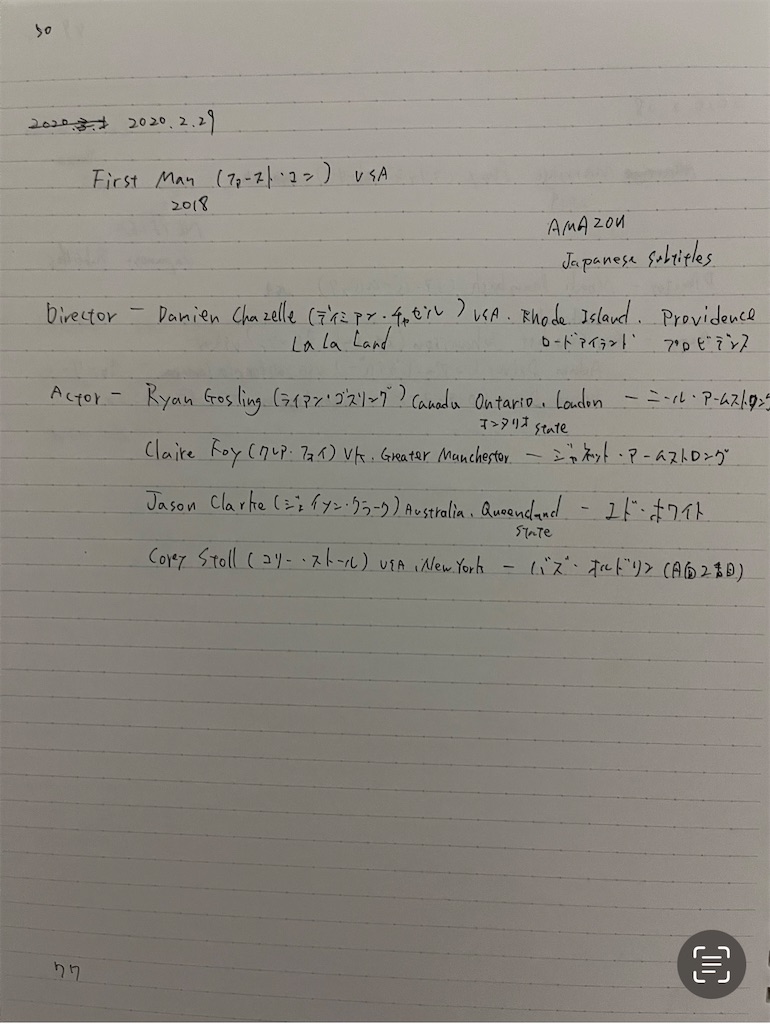 50
2020.3.1 2020.2.29
First Man (ファースト・マン) USA
2018
AMAZON
Japanese subtitles
Director - Damien Chazelle (デイミアン・チャゼル) USA. Rhode Island. Providence
La La Land ロードアイランド プロビデンス
Actor - Ryan Gosling (ライアン・ゴズリング) Canada Ontario. London - ニール・アームストロング
オンタリオ state
Claire Foy (クレア・フォイ) UK. Greater Manchester - ジャネット・アームストロング
Jason Clarke (ジェイソン・クラーク) Australia. Queensland - エド・ホワイト
state
Corey Stoll (コリー・ストール) USA. New York - バズ・オルドリン (月面2番目)
77